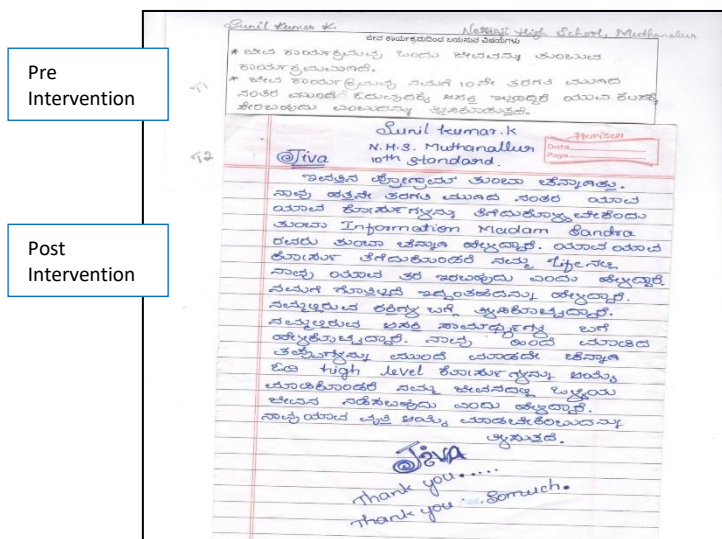 Sunil Kumar K. Nettaji High School, Muthanallur
ಜೀವ ಕಾರ್ಯಕ್ರಮದಿಂದ ಬಯಸುವ ವಿಷಯಗಳು
* ಜೀವ ಕಾರ್ಯಕ್ರಮವು ಒಂದು ಜೀವವನ್ನು ತುಂಬುವ
ಕಾರ್ಯಕ್ರಮವಾಗಿದೆ.
* ಜೀವ ಕಾರ್ಯಕ್ರಮವು ನಮಗೆ 10ನೇ ತರಗತಿ ಮುಗಿದ
ನಂತರ ಮುಂದೆ ಓದುವುದಕ್ಕೆ ಆಸಕ್ತಿ ಇಲ್ಲದಿದ್ದರೆ ಯಾವ ಕೆಲಸಕ್ಕೆ
ಸೇರಬಹುದು ಎಂಬುದನ್ನು ತಿಳಿಸಿಕೊಡುತ್ತದೆ.
Pre
Intervention
T1
Sunil kumar.K
N.H.S. Muthanallur
10th Standard.
Horizon
Date
Page
T2
Jiva
ಇವತ್ತಿನ ಪ್ರೋಗ್ರಾಮ್ ತುಂಬಾ ಚೆನ್ನಾಗಿತ್ತು.
ನಾವು ಹತ್ತನೇ ತರಗತಿ ಮುಗಿದ ನಂತರ ಯಾವ
ಯಾವ ಕೋರ್ಸುಗಳನ್ನು ತೆಗೆದುಕೊಳ್ಳಬೇಕೆಂದು
ತುಂಬಾ Information Madam Sandra
ರವರು ತುಂಬಾ ಚೆನ್ನಾಗಿ ಹೇಳಿದ್ದಾರೆ. ಯಾವ ಯಾವ
ಕೋರ್ಸು ತೆಗೆದುಕೊಂಡರೆ ನಮ್ಮ life ನಲ್ಲಿ
ನಾವು ಯಾವ ತರ ಇರಬಹುದು ಎಂದು ಹೇಳಿದ್ದಾರೆ.
ನಮಗೆ ಗೊತ್ತಿಲ್ಲದೆ ಇದ್ದಂತಹದನ್ನು ಹೇಳಿದ್ದಾರೆ.
ನಮ್ಮಲ್ಲಿರುವ ಶಕ್ತಿಗಳ ಬಗ್ಗೆ ತಿಳಿಸಿಕೊಟ್ಟಿದ್ದಾರೆ.
ನಮ್ಮಲ್ಲಿರುವ ಆಸಕ್ತಿ ಸಾಮರ್ಥ್ಯಗಳ ಬಗೆ
ಹೇಳಿಕೊಟ್ಟಿದ್ದಾರೆ. ನಾವು ಹಿಂದೆ ಮಾಡಿದ
ತಪ್ಪುಗಳನ್ನು ಮುಂದೆ ಮಾಡದೇ ಚೆನ್ನಾಗಿ
ಓದಿ high level ಕೋರ್ಸುಗಳನ್ನು ಆಯ್ಕೆ
ಮಾಡಿಕೊಂಡರೆ ನಮ್ಮ ಜೀವನದಲ್ಲಿ ಒಳ್ಳೆಯ
ಜೀವನ ನಡೆಸಬಹುದು ಎಂದು ಹೇಳಿದ್ದಾರೆ.
ನಾವು ಯಾವ ವೃತ್ತಿ ಆಯ್ಕೆ ಮಾಡಬೇಕೆಂಬುದನ್ನು
ತಿಳಿಸುತ್ತದೆ.
Post
Intervention
JIVA
Thank you......
Thank you ... Somuch.